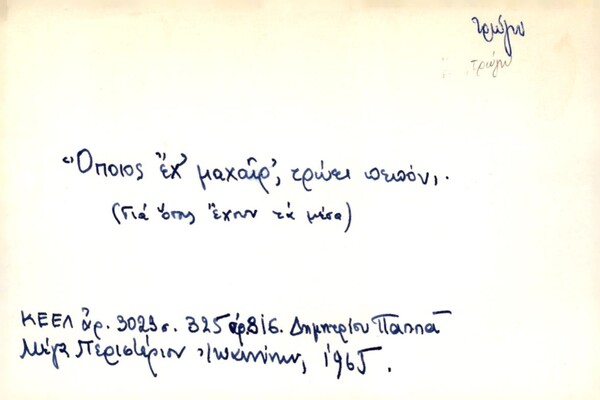 τρώγω
τρώγω
"Ὅποιος ἔχ' μαχαῖρ', τρώει πεπόν,,.
(Γιά ὅσους ἔχουν τά μέσα)
ΚΕΕΛ ἀρ. 3023 σ. 325 ἀρ. 816. Δημητρίου Παππᾶ
Μέγα Περιστέριον Ἰωαννίνων, 1965.